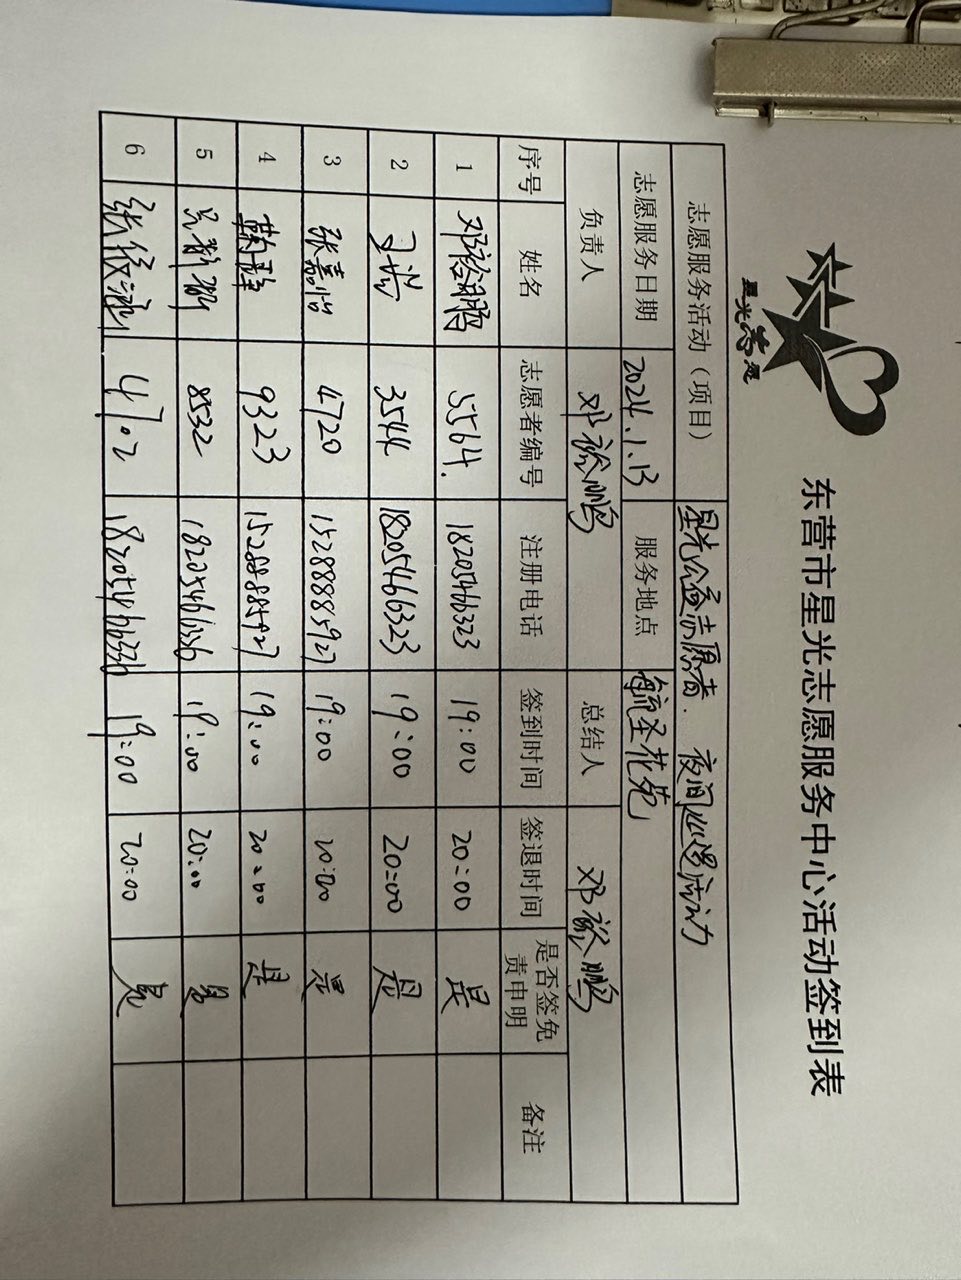 星光志愿
东营市星光志愿服务中心活动签到表
志愿服务活动（项目） 星光公益志愿者. 夜间巡逻活动
志愿服务日期 2024.1.13 服务地点 毓圣花苑
负责人 邓裕鹏 总结人 邓裕鹏
序号 姓名 志愿者编号 注册电话 签到时间 签退时间 是否签免责申明 备注
1 邓裕鹏 5564. 18205466323 19:00 20:00 是
2 3544 18205466323 19:00 20:00 是
3 张嘉怡 4720 15288885927 19:00 20:00 是
4 9323 15288885927 19:00 20:00 是
5 8532 18205466336 19:00 20:00 是
6 4702 18205466336 19:00 20:00 是